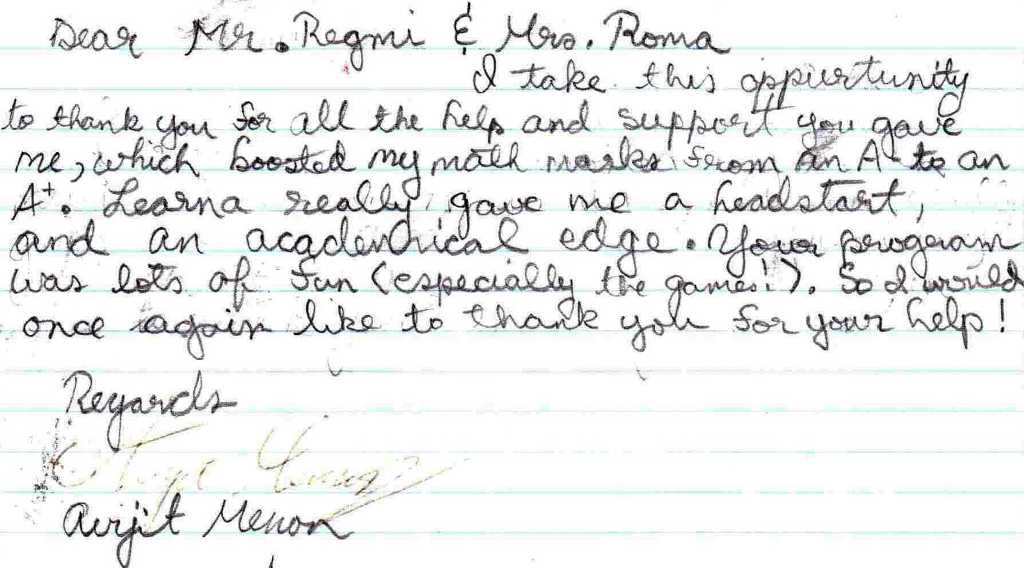 Dear Mr. Regmi & Mrs. Roma
I take this oppurtunity
to thank you for all the help and support you gave
me, which boosted my math marks from an A to an
A+. Learna really gave me a headstart,
and an academical edge. Your program
was lots of fun (especially the games!). So I would
once again like to thank you for your help!
Regards
Avijit Menon